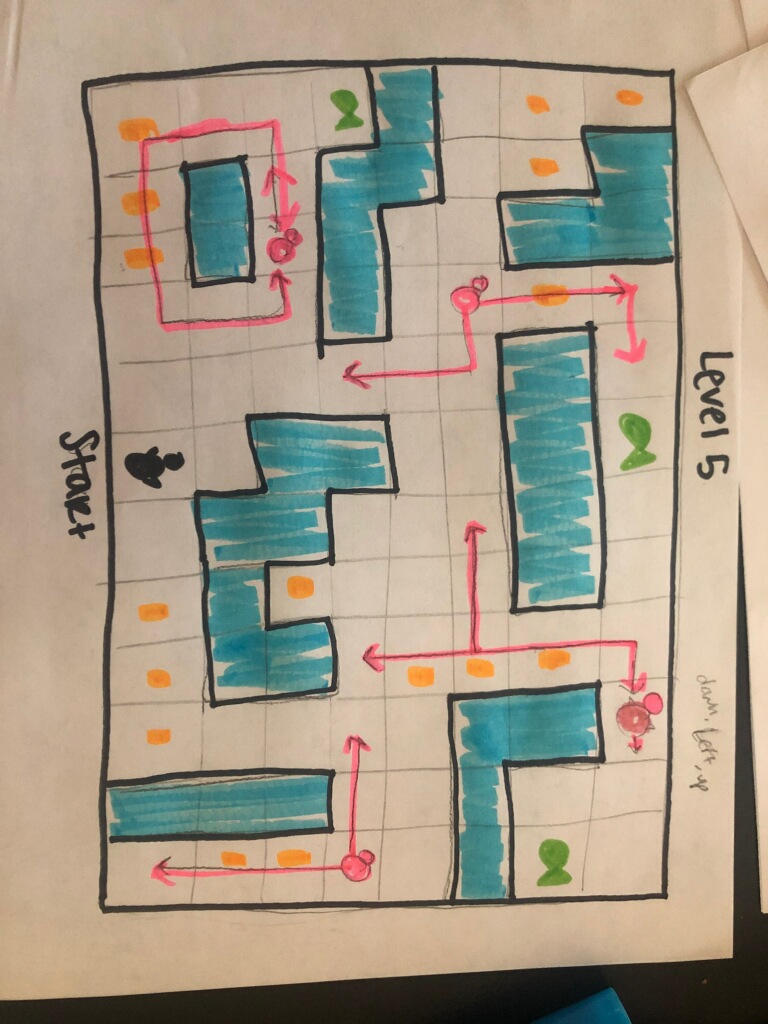 Level 5
down, Left, up
Start